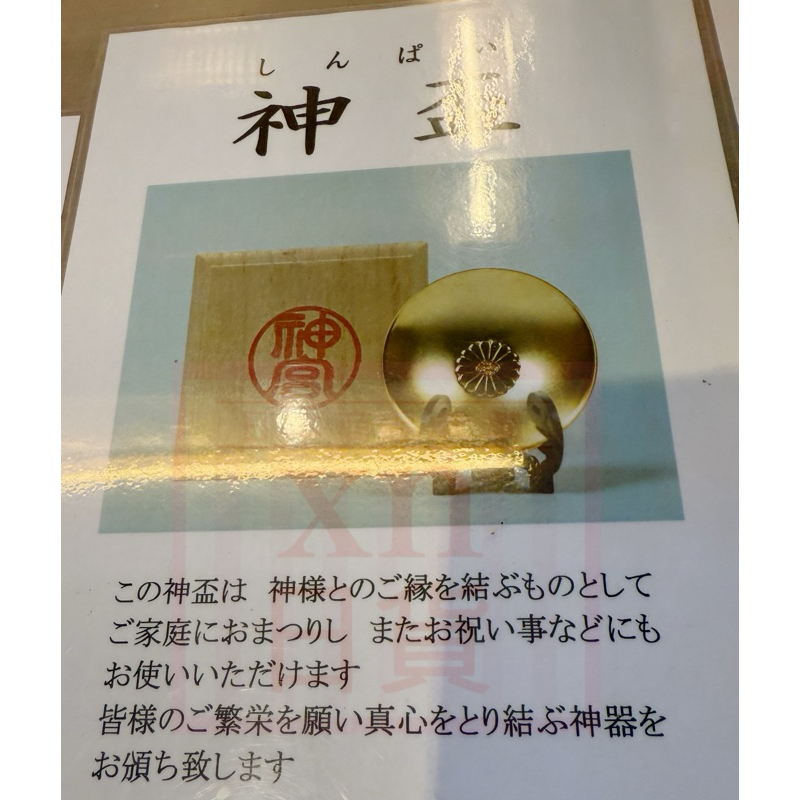 しんぱい
神盃
神宮
XII
日貨
この神盃は 神様とのご縁を結ぶものとして
ご家庭におまつりし またお祝い事などにも
お使いいただけます
皆様のご繁栄を願い真心をとり結ぶ神器を
お頒ち致します